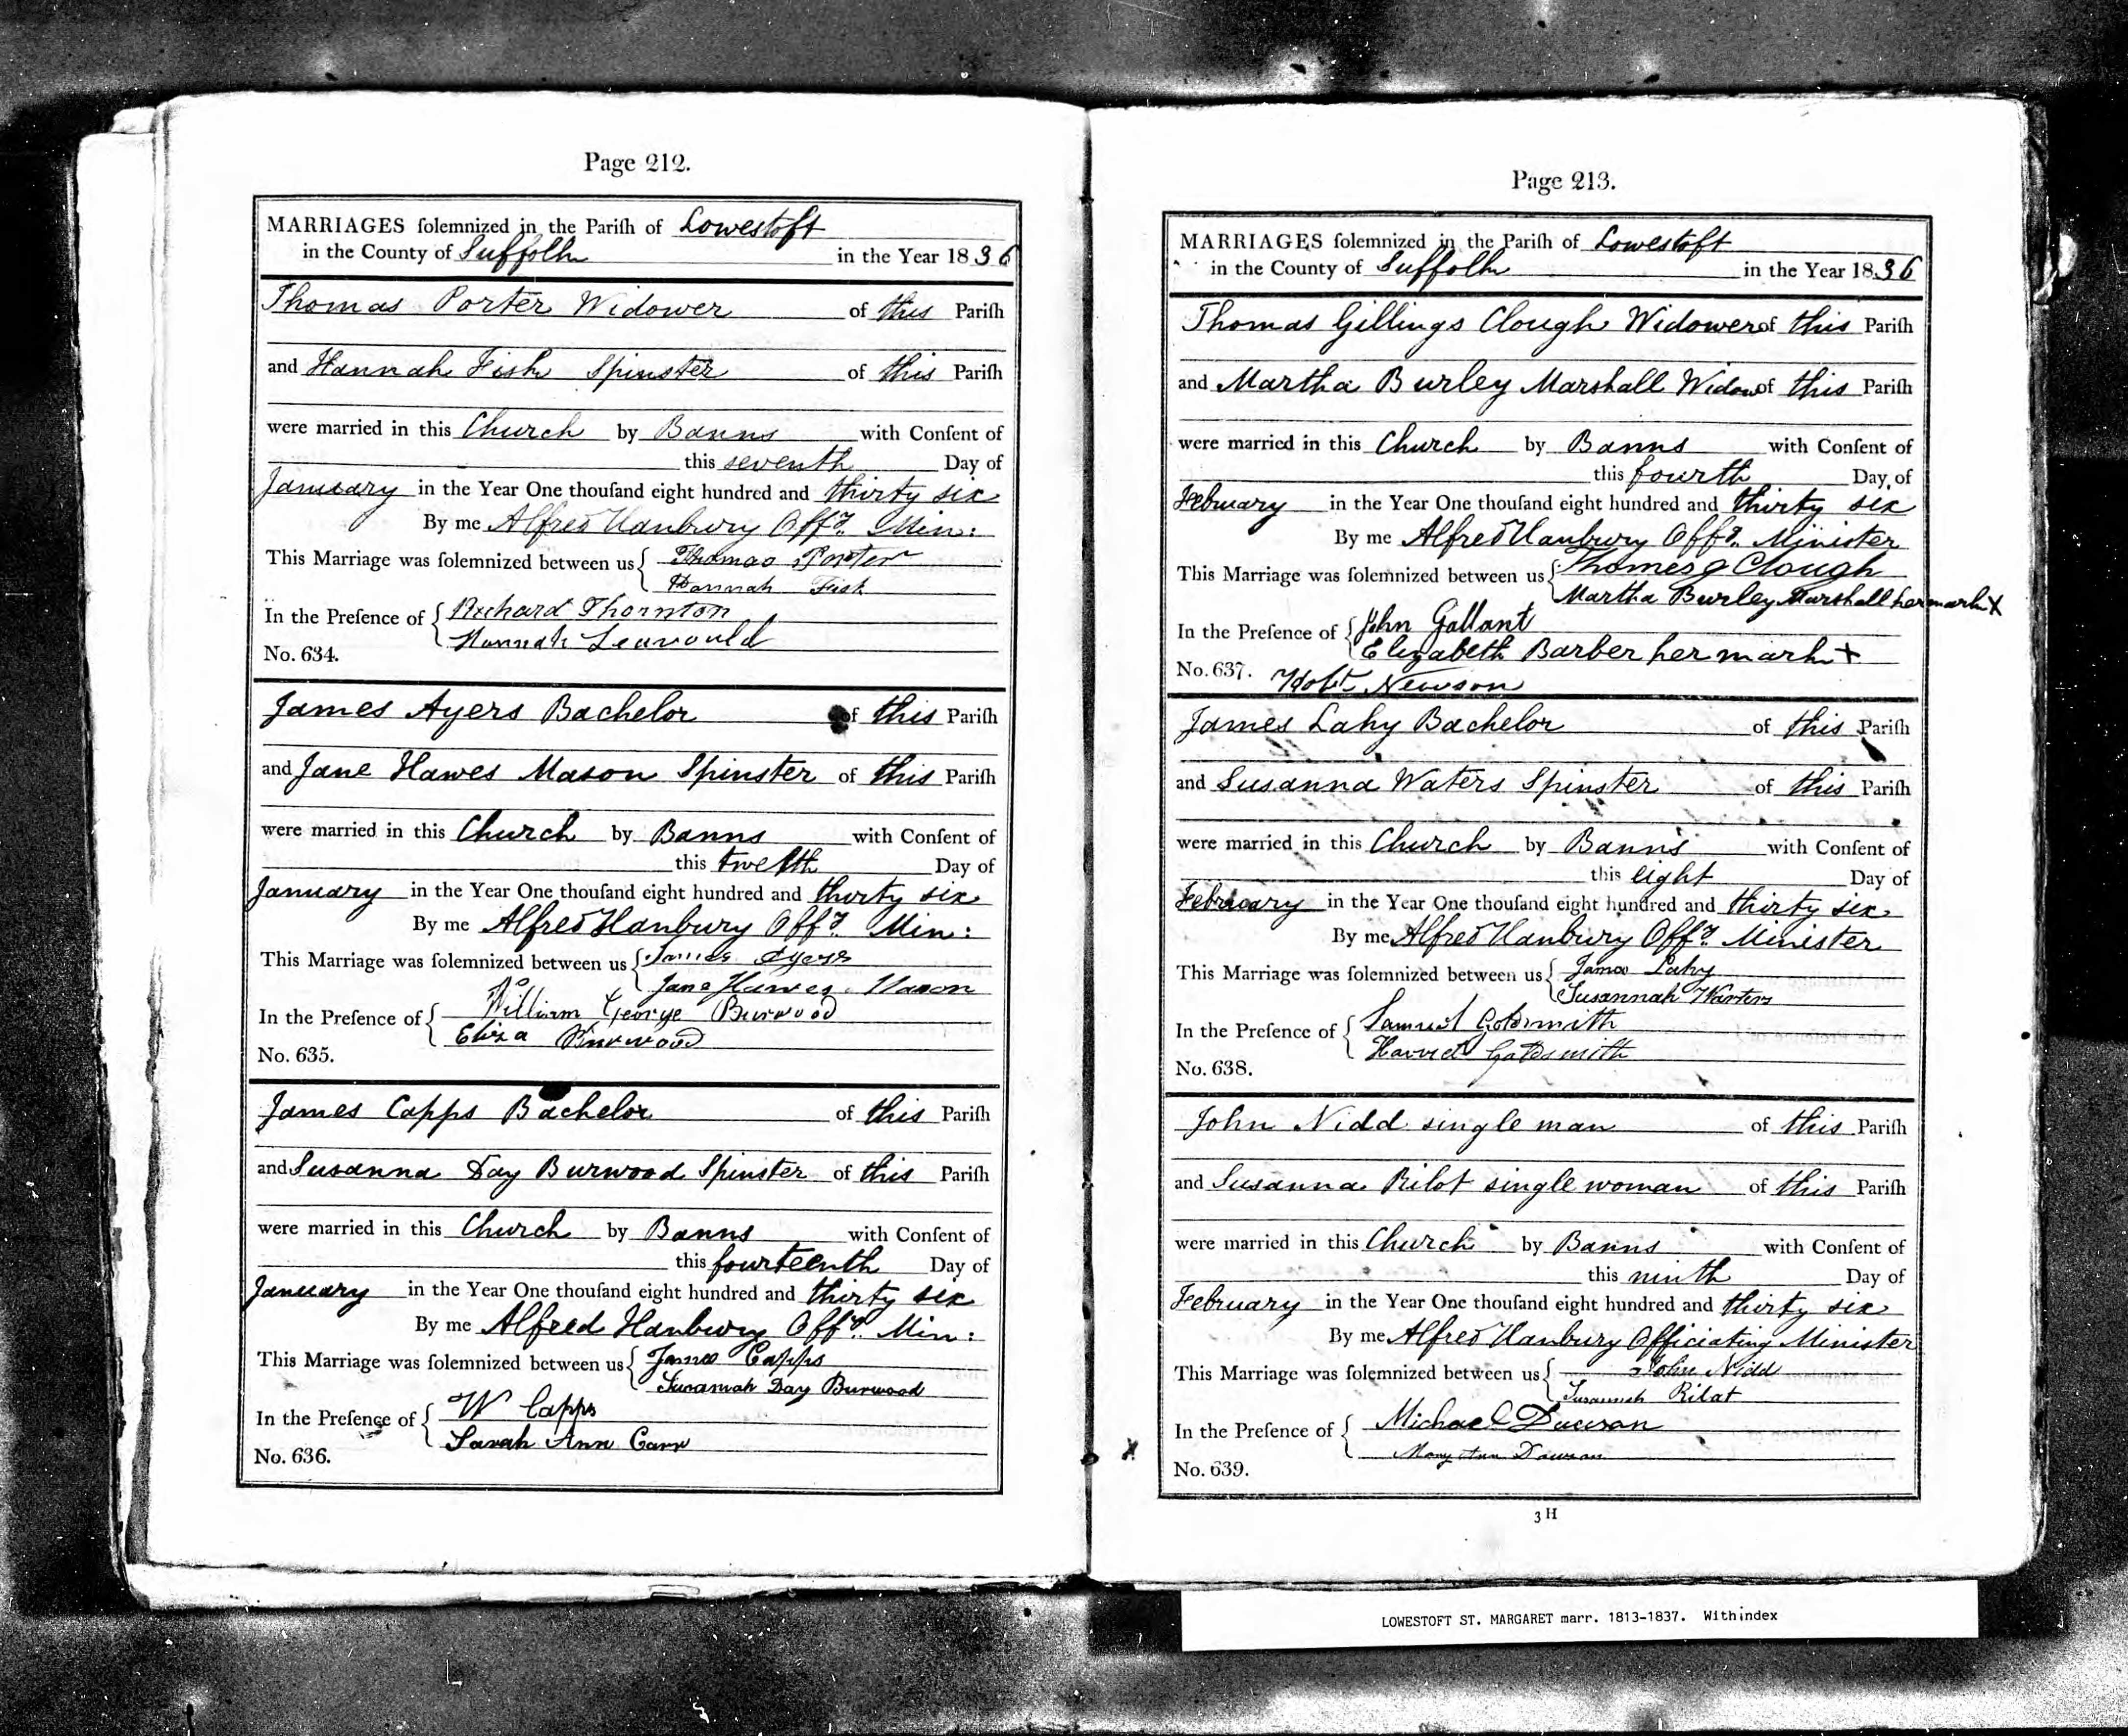 Page 212.
MARRIAGES ſolemnized in the Pariſh of Lowestoft
in the County of Suffolk in the Year 1836
Thomas Porter Widower of this Pariſh
and Hannah Fish Spinster of this Pariſh
were married in this Church by Banns with Conſent of
this seventh Day of
January in the Year One thouſand eight hundred and thirty six
By me Alfred Hanbury Offg. Min:
This Marriage was ſolemnized between us { Thomas Porter
Hannah Fish
In the Preſence of { Richard Thornton
Hannah
No. 634.
James Ayers Bachelor of this Pariſh
and Jane Hawes Mason Spinster of this Pariſh
were married in this Church by Banns with Conſent of
this twelfth Day of
January in the Year One thouſand eight hundred and thirty six
By me Alfred Hanbury Offg. Min:
This Marriage was ſolemnized between us { James Ayers
Jane Hawes Mason
In the Preſence of { William George Burwood
Eliza Burwood
No. 635.
James Capps Bachelor of this Pariſh
and Susanna Day Burwood Spinster of this Pariſh
were married in this Church by Banns with Conſent of
this fourteenth Day of
January in the Year One thouſand eight hundred and thirty six
By me Alfred Hanbury Offg. Min:
This Marriage was ſolemnized between us { James Capps
Susannah Day Burwood
In the Preſence of { W Capps
Sarah Ann Carr
No. 636.
Page 213.
MARRIAGES ſolemnized in the Pariſh of Lowestoft
in the County of Suffolk in the Year 1836
Thomas Gillings Clough Widower of this Pariſh
and Martha Burley Marshall Widow of this Pariſh
were married in this Church by Banns with Conſent of
this fourth Day of
February in the Year One thouſand eight hundred and thirty six
By me Alfred Hanbury Offg. Minister
This Marriage was ſolemnized between us { Thomas G Clough
Martha Burley Marshall her mark X
In the Preſence of { John Gallant
Elizabeth Barber her mark +
No. 637. Robt. Newson
James Lahy Bachelor of this Pariſh
and Susanna Waters Spinster of this Pariſh
were married in this Church by Banns with Conſent of
this eight Day of
February in the Year One thouſand eight hundred and thirty six
By me Alfred Hanbury Offg. Minister
This Marriage was ſolemnized between us { James Lahy
Susannah Warters
In the Preſence of { Samuel Goldsmith
Harriet Goldsmith
No. 638.
John Nidd single man of this Pariſh
and Susanna Rilot single woman of this Pariſh
were married in this Church by Banns with Conſent of
this ninth Day of
February in the Year One thouſand eight hundred and thirty six
By me Alfred Hanbury Officiating Minister
This Marriage was ſolemnized between us { John Nidd
Susannah Rilot
In the Preſence of { Michael Dawson
X Mary Ann Dawson
No. 639.
3 H
LOWESTOFT ST. MARGARET marr. 1813-1837. Withindex